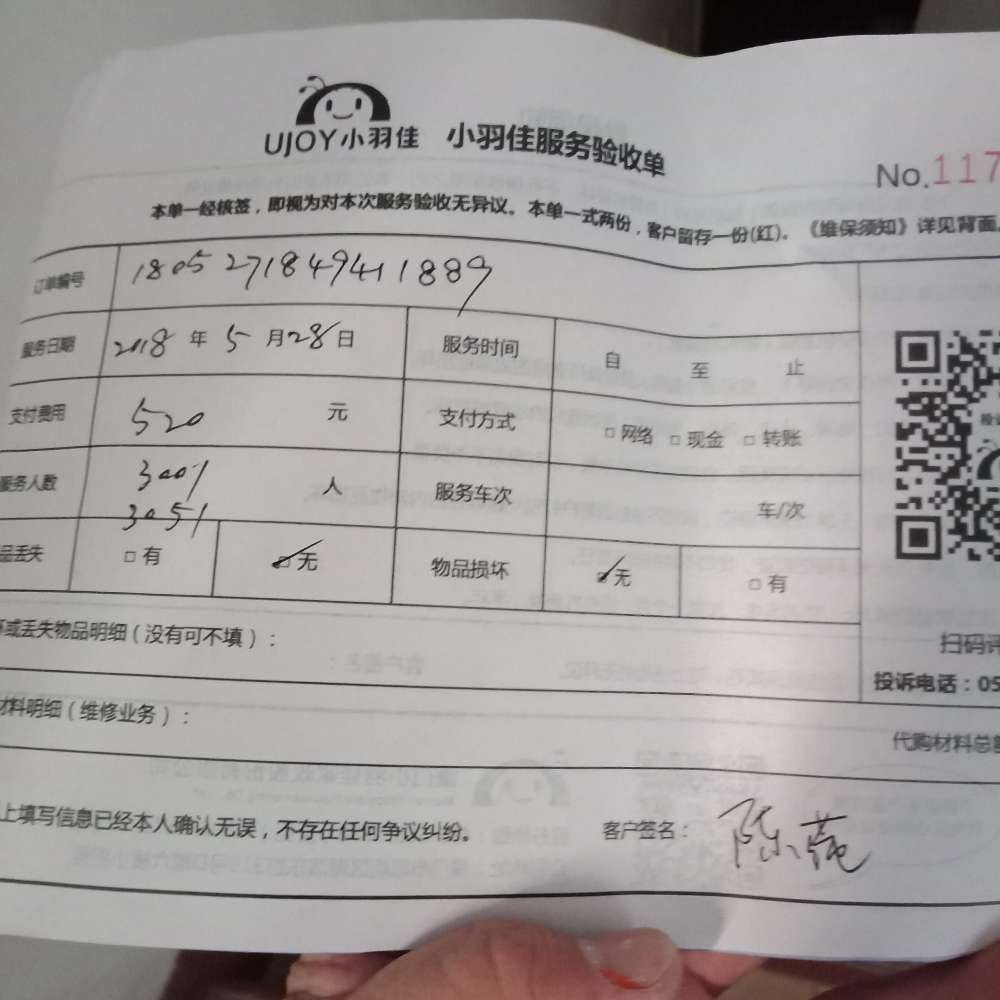 UJOY小羽佳 小羽佳服务验收单
No.117
本单一经核签，即视为对本次服务验收无异议。本单一式两份，客户留存一份(红)。《维保须知》详见背面。
订单编号 1805271849411889
服务日期 2018 年 5 月 28 日 服务时间 自 至 止
支付费用 520 元 支付方式 □ 网络 □ 现金 □ 转账
服务人数 3001 3051 人 服务车次 车/次
品丢失 □ 有 ☑ 无 物品损坏 ☑ 无 □ 有
或丢失物品明细（没有可不填）：
扫码评
投诉电话：05
材料明细（维修业务）：
代购材料总
上填写信息已经本人确认无误，不存在任何争议纠纷。 客户签名：陈